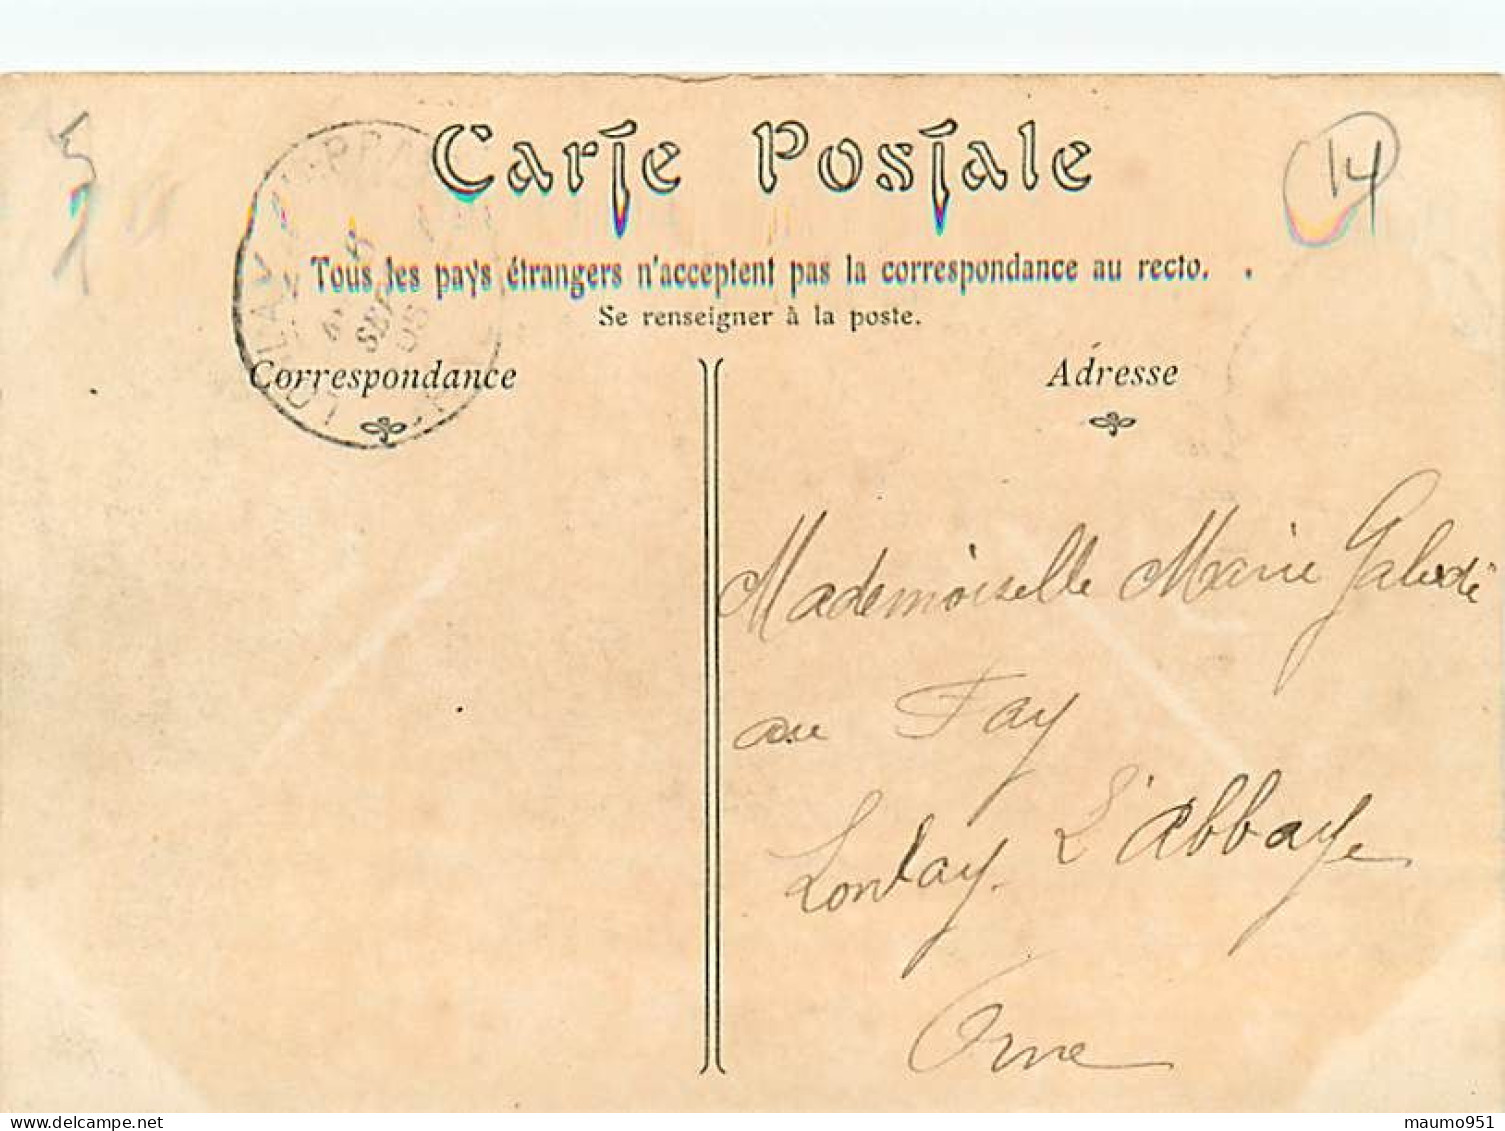 Carte Postale
14
Tous les pays étrangers n'acceptent pas la correspondance au recto.
Se renseigner à la poste.
Correspondance
Adresse
SEPT
Mademoiselle Marie
au Fay
Lonlay L'abbaye
Orne
maumo951